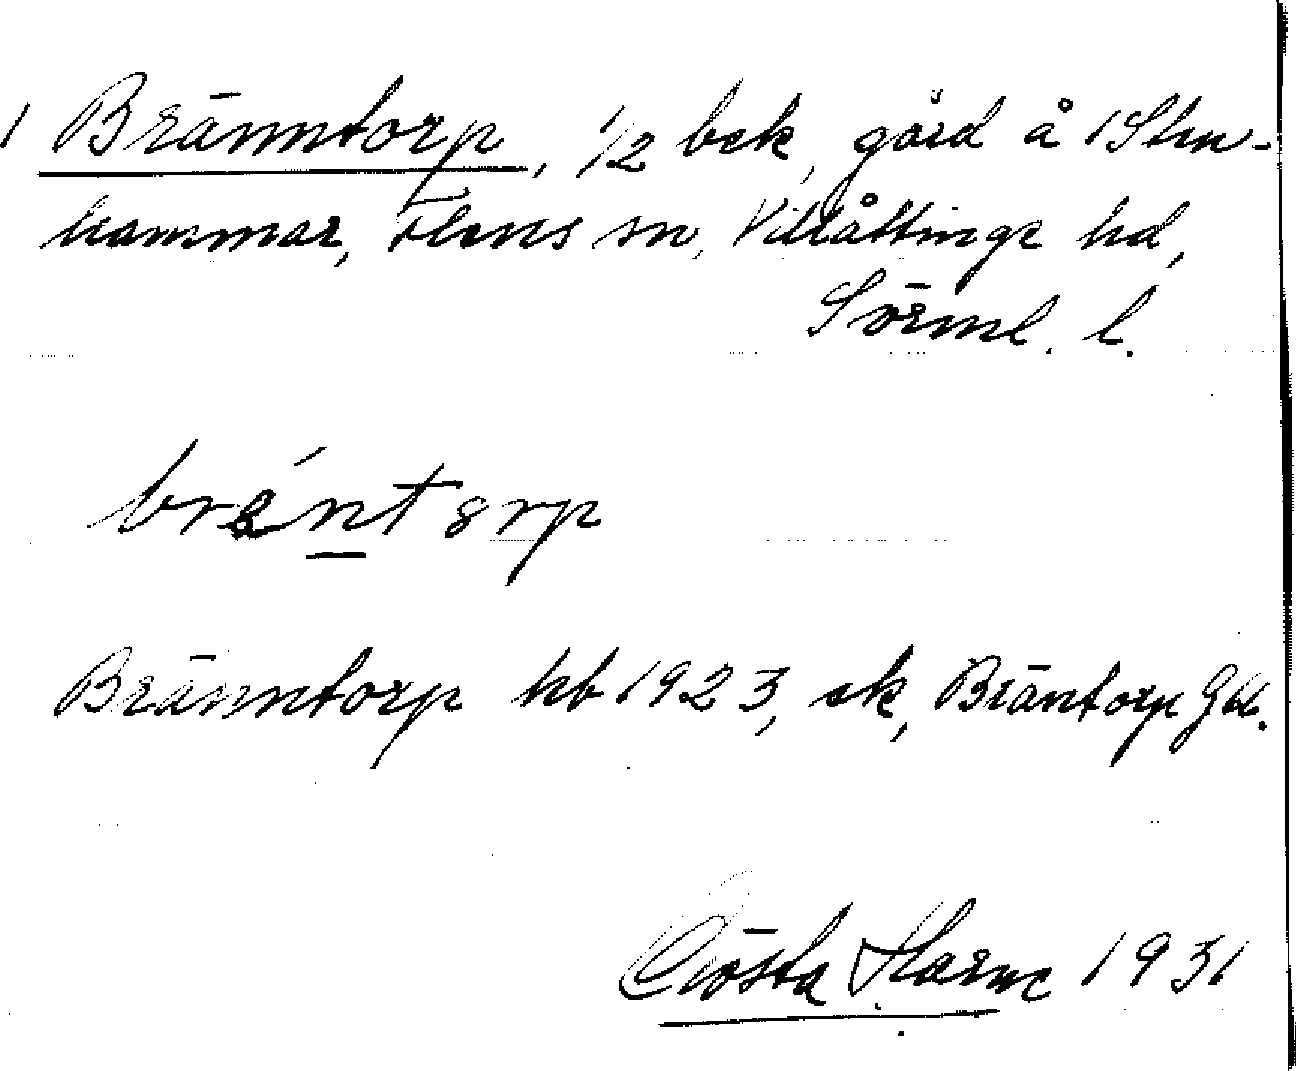 1 Bränntorp, 1/2 bek, gård å 1 Sten-
hammar, Flens sn, Villåttinge hd,
Sörml. l.
brántorp
Bränntorp hb 1923, ek, Bräntorp Gbl.
Gösta Harne 1931